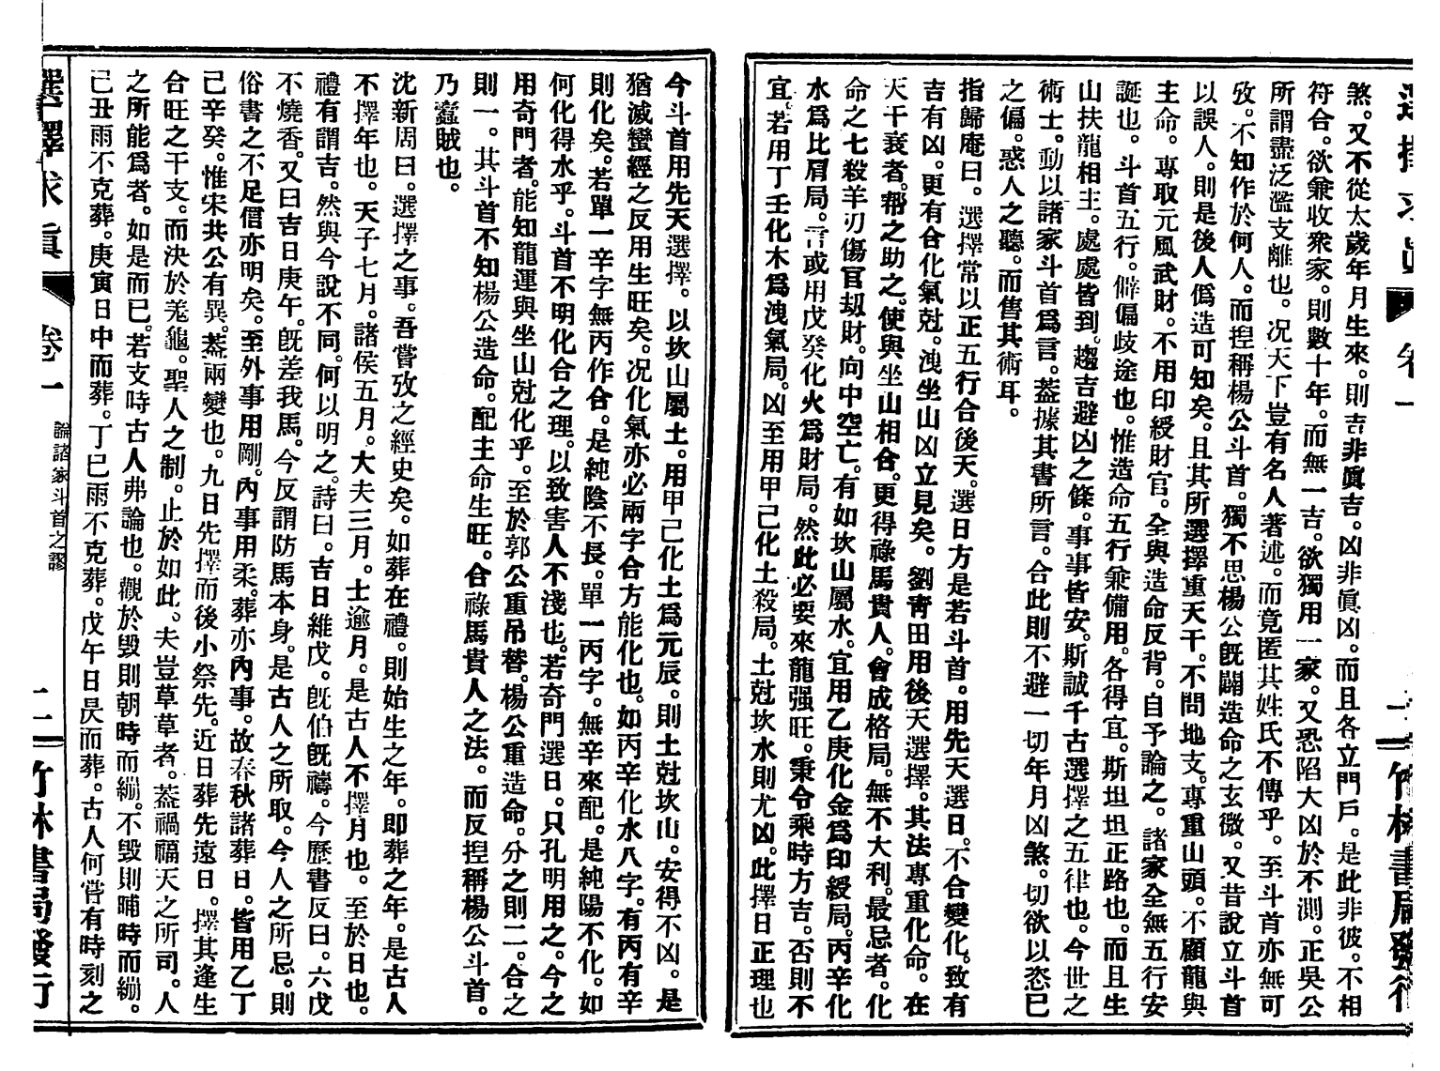 選擇求眞 卷一 二 竹林書局發行
煞。又不從太歲年月生來。則吉非眞吉。凶非眞凶。而且各立門戶。是此非彼。不相
符合。欲兼收衆家。則數十年。而無一吉。欲獨用一家。又恐陷大凶於不測。正吳公
所謂盡泛濫支離也。况天下豈有名人著述。而竟匿其姓氏不傳乎。至斗首亦無可
攷。不知作於何人。而揑稱楊公斗首。獨不思楊公旣闢造命之玄微。又昔說立斗首
以誤人。則是後人僞造可知矣。且其所選擇重天干。不問地支。專重山頭。不顧龍與
主命。專取元風武財。不用印綬財官。全與造命反背。自予論之。諸家全無五行安
誕也。斗首五行。僻偏歧途也。惟造命五行兼備用。各得宜。斯坦坦正路也。而且生
山扶龍相主。處處皆到。趨吉避凶之條。事事皆安。斯誠千古選擇之五律也。今世之
術士。動以諸家斗首爲言。葢據其書所言。合此則不避一切年月凶煞。切欲以恣已
之偏。惑人之聽。而售其術耳。
指歸庵曰。選擇常以正五行合後天。選日方是若斗首。用先天選日。不合變化。致有
吉有凶。更有合化氣尅。洩坐山凶立見矣。劉靑田用後天選擇。其法專重化命。在
天干衰者。帮之助之。使與坐山相合。更得祿馬貴人。會成格局。無不大利。最忌者。化
命之七殺羊刃傷官刼財。向中空亡。有如坎山屬水。宜用乙庚化金爲印綬局。丙辛化
水爲比肩局。言或用戊癸化火爲財局。然此必要來龍强旺。秉令乘時方吉。否則不
宜。若用丁壬化木爲洩氣局。凶至用甲己化土殺局。土尅坎水則尤凶。此擇日正理也
今斗首用先天選擇。以坎山屬土。用甲己化土爲元辰。則土尅坎山。安得不凶。是
猶滅蠻經之反用生旺矣。况化氣亦必兩字合方能化也。如丙辛化水八字。有丙有辛
則化矣。若單一辛字無丙作合。是純陰不長。單一丙字。無辛來配。是純陽不化。如
何化得水乎。斗首不明化合之理。以致害人不淺也。若奇門選日。只孔明用之。今之
用奇門者。能知龍運與坐山尅化乎。至於郭公重吊替。楊公重造命。分之則二。合之
則一。其斗首不知楊公造命。配主命生旺。合祿馬貴人之法。而反揑稱楊公斗首。
乃蠧賊也。
沈新周曰。選擇之事。吾嘗攷之經史矣。如葬在禮。則始生之年。卽葬之年。是古人
不擇年也。天子七月。諸侯五月。大夫三月。士逾月。是古人不擇月也。至於日也。
禮有謂吉。然與今說不同。何以明之。詩曰。吉日維戊。旣伯旣禱。今歷書反曰。六戊
不燒香。又曰吉日庚午。旣差我馬。今反謂防馬本身。是古人之所取。今人之所忌。則
俗書之不足信亦明矣。至外事用剛。內事用柔。葬亦內事。故春秋諸葬日。皆用乙丁
己辛癸。惟宋共公有異。葢兩變也。九日先擇而後小祭先。近日葬先遠日。擇其逢生
合旺之干支。而決於羗龜。聖人之制。止於如此。夫豈草草者。葢禍福天之所司。人
之所能爲者。如是而已。若支時古人弗論也。觀於毀則朝時而繃。不毀則晡時而繃。
己丑雨不克葬。庚寅日中而葬。丁巳雨不克葬。戊午日昃而葬。古人何嘗有時刻之
選擇求眞 卷一 論諸家斗首之謬 二 竹林書局發行